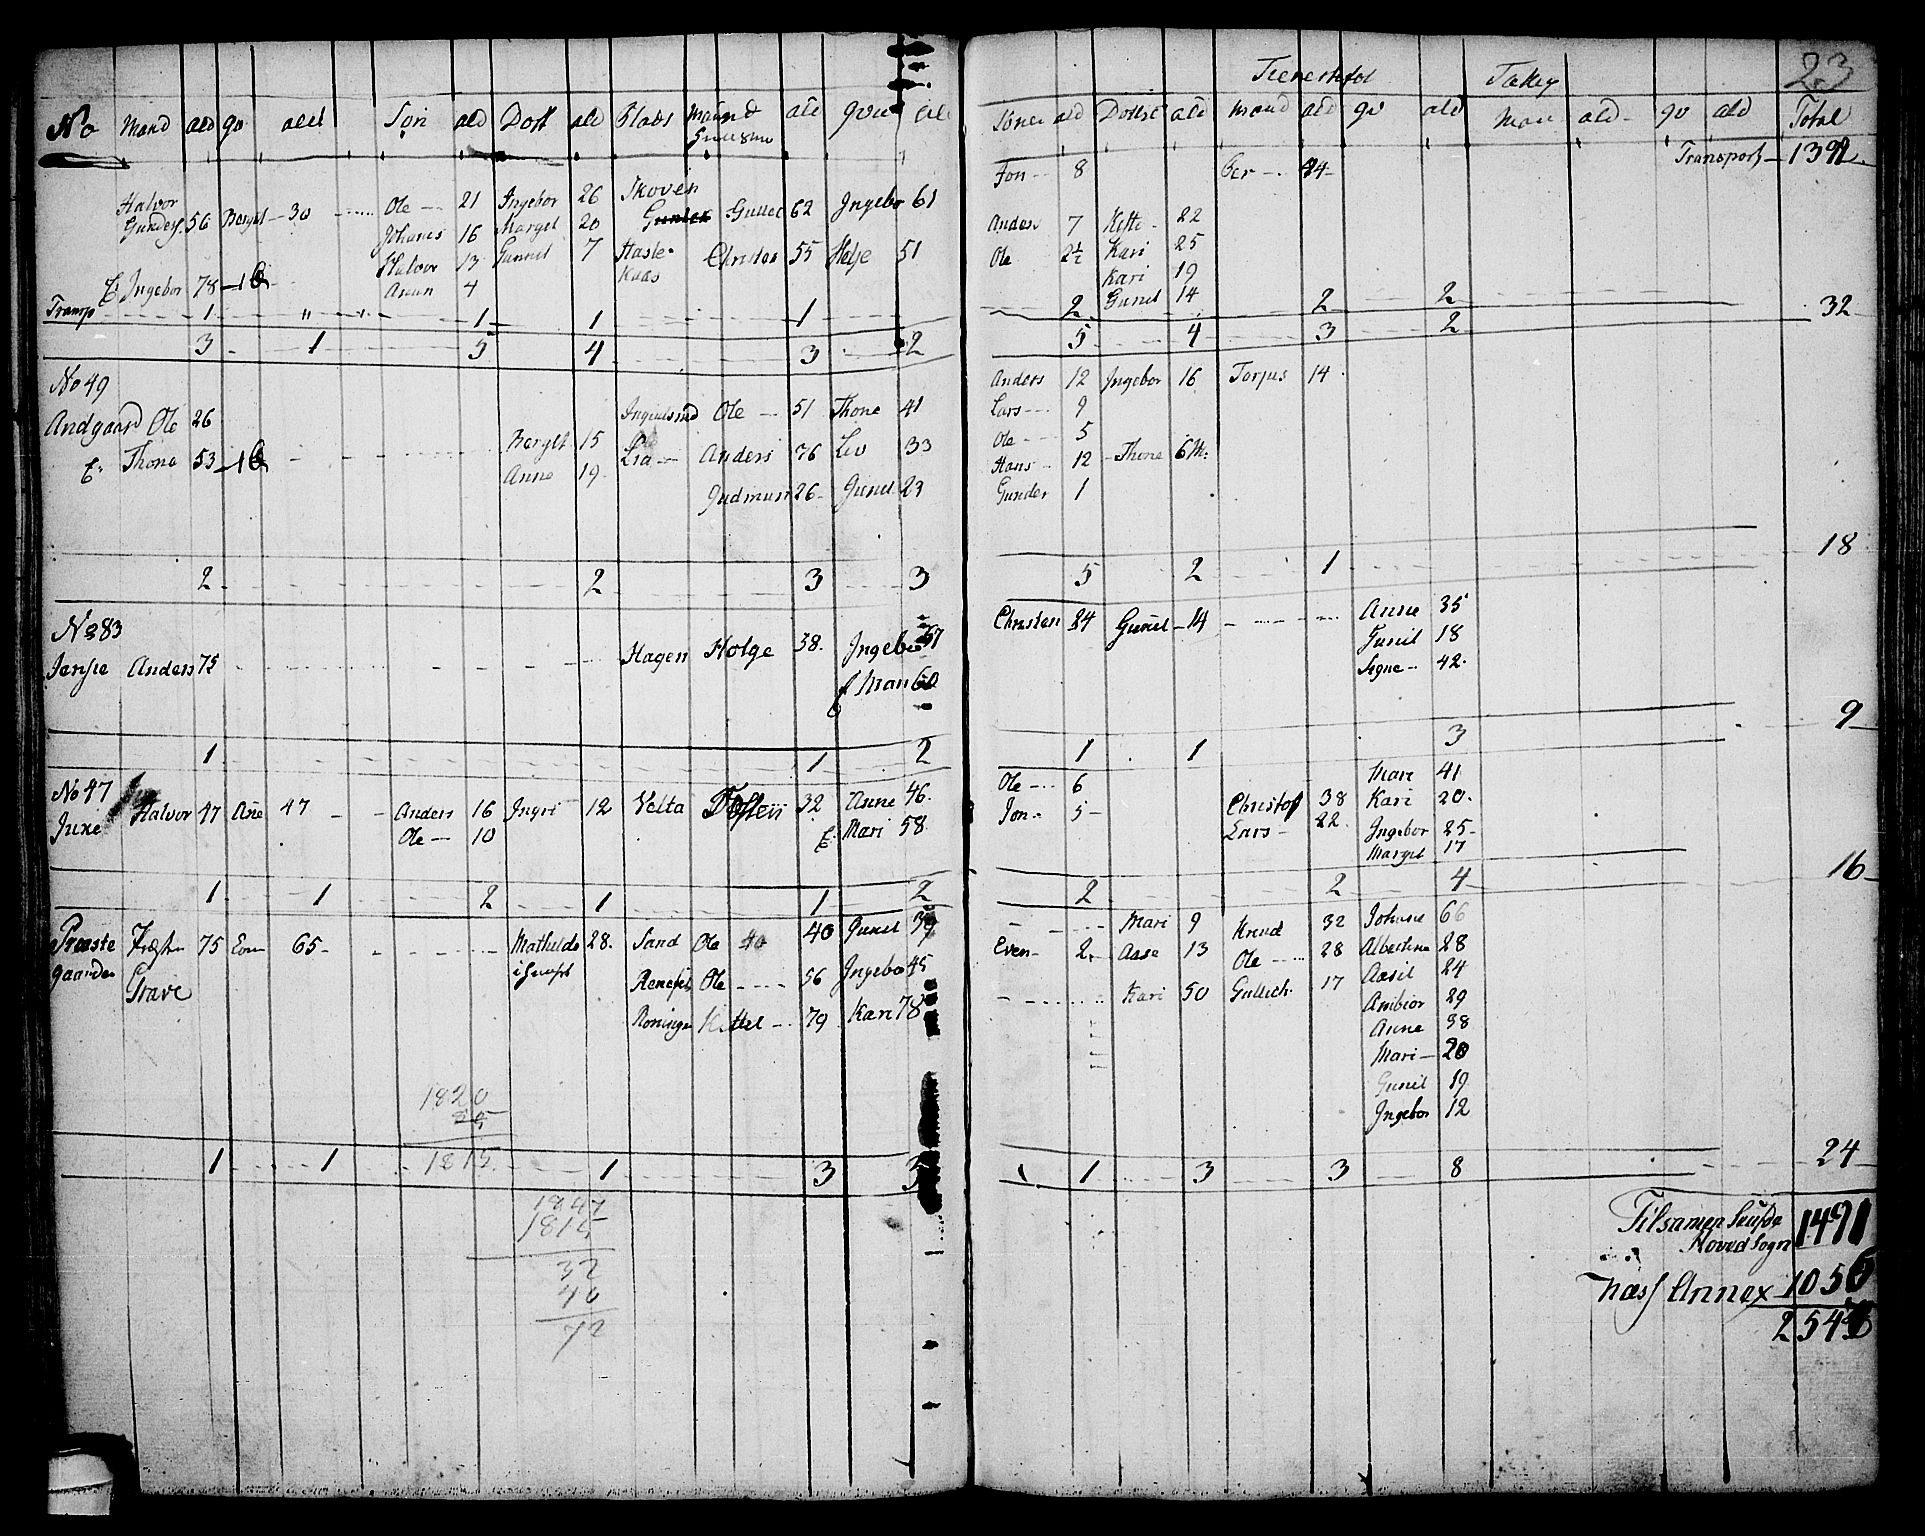 23
Tienestefol
No Mand ald qv ald Søn ald Dott ald Plads Mand ald qvin ald
Søner ald Dottre ald mand ald qv ald Man ald qv ald Total
Transport 1392
Halvor Gunders. 56 Berget 30 Ole 21 Ingebor 26 Skoven Gullec 62 Ingebor 61
Johanes 16 Marget 20
Halvor 13 Gunnil 7 Hasle Kaas Christen 55 Helje 51
E. Ingebor 78 Amun 4
Transp 1 " " 1 1 1
3 1 5 4 3 2
Jon 8 Per 44
Anders 7 Kisti 22
Ole 2½ Kari 25
Kari 19
Gunil 14
2 2 2 32
5 4 3 2
No 49
Andgaard Ole 26
E. Thone 53
Berget 15
Anne 19
Ole 51 Thone 41
Lia Anders 76 Liv 33
Gudmun 26 Gunil 23
2 2 3 3
Anders 12 Ingebor 16 Torjus 14
Lars 9
Ole 5
Hans 12 Thone 6 M.
Gunder 1
18
5 2 1
No 83
Anders 75 Hagen Holge 38 Ingebor 57
Mari 60
1 1 2
Christen 24 Gunil 14 Anne 35
Gunil 18
Signe 42
9
1 1 3
No 47
Juxe Halvor 47 Ane 47 Anders 16 Ingri 12 Velta Tosten 32 Anne 46
Ole 10 E. Mari 58
1 1 2 1 1 2
Ole 6 Mari 41
Jon 5 Christof 38 Kari 20
Lars 22 Ingebor 25
Marget 17
16
2 2 4
Præste gaarden Grave 75 65 Mathilde 28 Sand Ole 40 40 Gunil 39
Ole 56 Ingebor 45
Roningen Kittel 79 Kari 78
Mari 9 Knud 32 Johane 66
Even 2 Asse 13 Ole 28 Albertine 28
Kari 50 Gullich 17 Aasil 24
Ambior 29
Anne 38
Mari 20
Gunil 19
Ingebor 12
24
1820
1 1 1815 1 3 3
1 3 3 8
1847
1815
32
40
72
Tilsamen
Hoved Sogn 1491
Næs Annex 1056